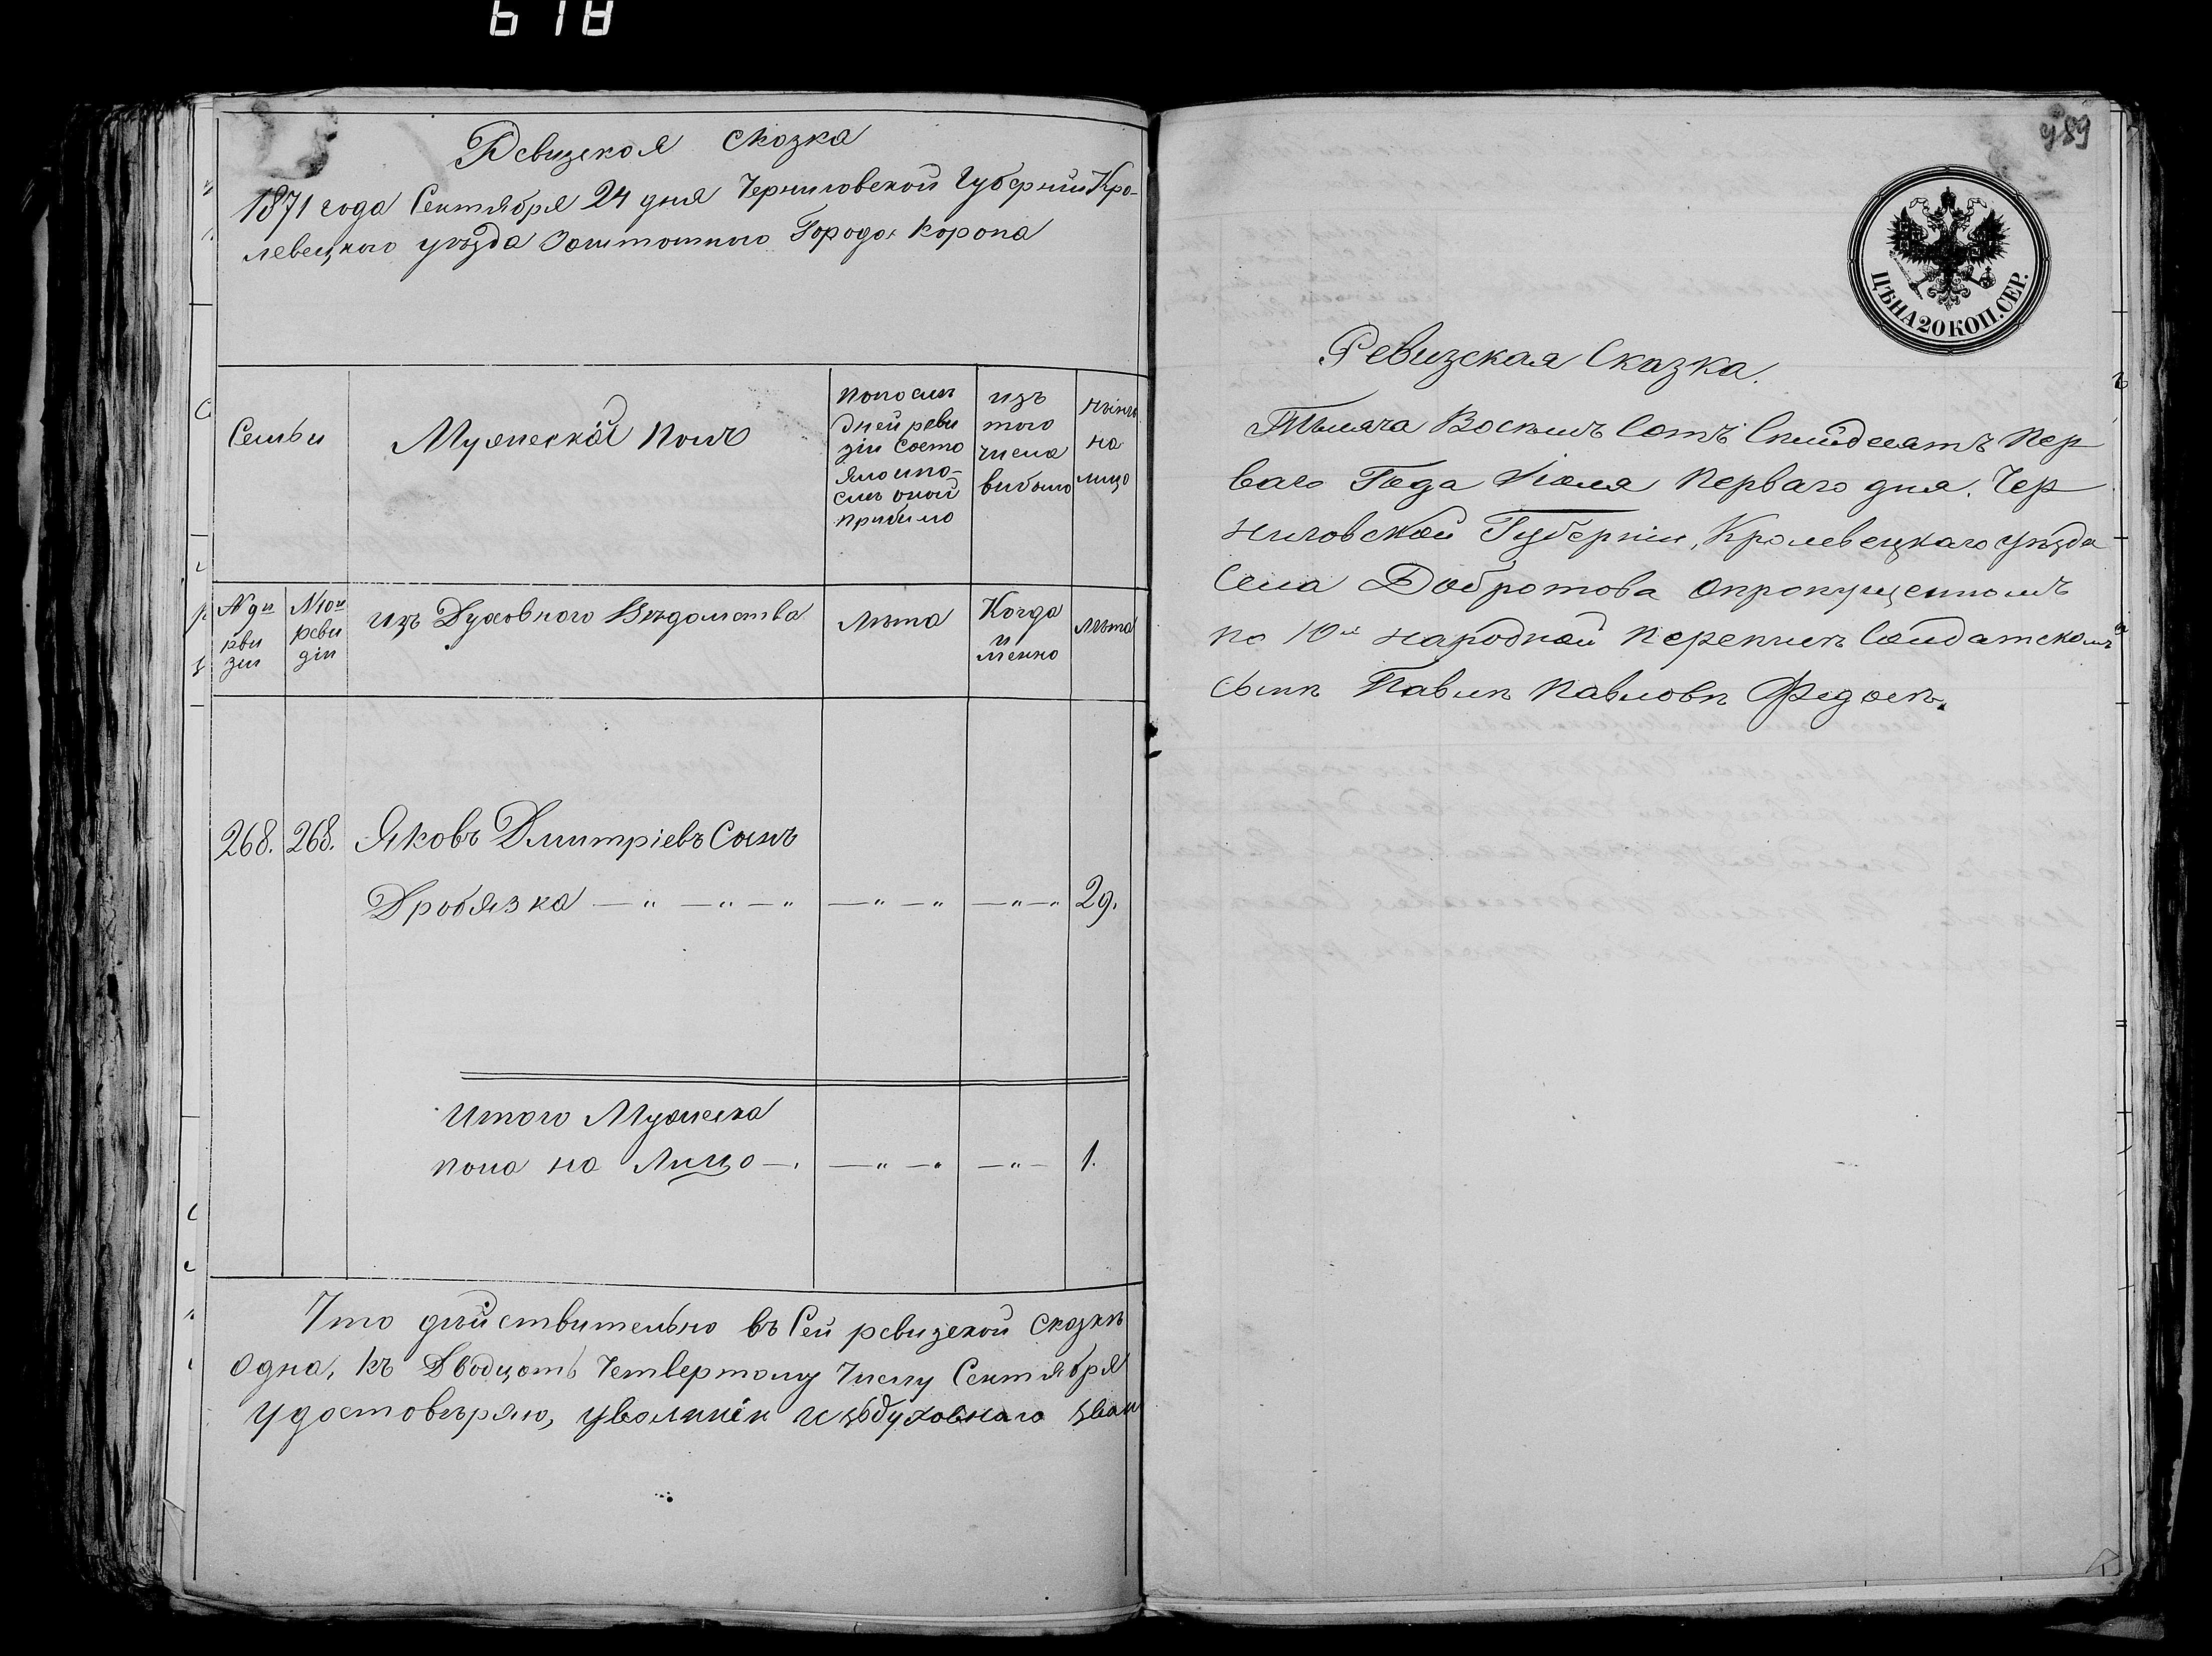 618
Ревизская сказка
1871 года Сентября 24 дня Черниговской Губернии Кро-
левецкого уѣзда Заштатного Города Коропа
Семьи
Мужескій полъ
по послѣ
дней реви
зіи состо
яло и по-
слѣ оной
прибыло
изъ
того
числа
выбыло
нынѣ
на
лицо
№ 9й
реви
зіи
№ 10й
реви
зіи
Изъ Духовного Вѣдомства
Лѣта
Когда
и
менно
Лѣта
268. 268. Яковъ Дмитріевъ Сынъ
Дробязка — „ — „ — „ — „ — „ — „ — „ 29.
Итого Мужеска
пола на Лицо — — „ — — „ — 1.
Что дѣйствительно въ Сей ревизской сказкѣ
одна, къ Двадцать Четвертому Числу Сентября
Удостовѣряю, уволнній изъ духовнаго зван
989
ЦѢНА 20 КОП. СЕР.
Ревизская Сказка.
Тысяча Восемъ Сотъ Семдесятъ Пер
ваго Года Іюля Перваго дня. Чер
ниговской Губерніи, Кролевецкаго Уѣзда
Села Добротова о пропущенномъ
по 10й народной переписѣ Солдатскомъ
сынѣ Павлѣ Павловѣ